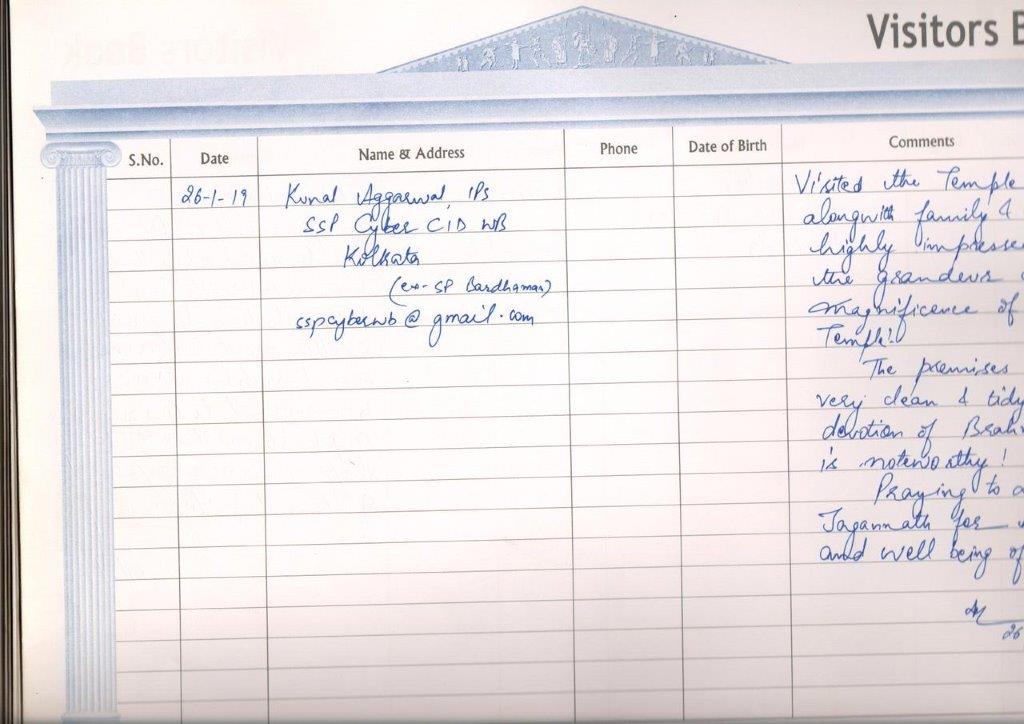 Visitors B
S.No. Date Name & Address Phone Date of Birth Comments
26-1-19 Kunal Aggarwal, IPS
SSP Cyber CID WB
Kolkata
(ex-SP Bardhaman)
sspcyberwb@gmail.com
Visited the Temple
alongwith family &
highly impresse
the grandeur
magnificence of
Temple!
The premises
very clean & tidy
devotion of Brah
is noteworthy!
Praying to
Jagannath for
and well being of
26